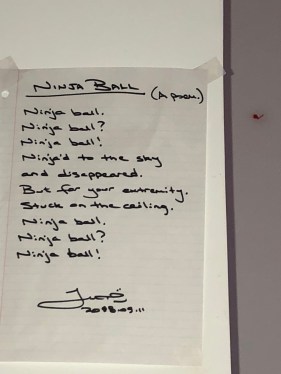 NINJA BALL
(A poem.)
Ninja ball.
Ninja ball?
Ninja ball!
Ninja'd to the sky
and disappeared.
But for your extremity.
Stuck on the ceiling.
Ninja ball.
Ninja ball?
Ninja ball!